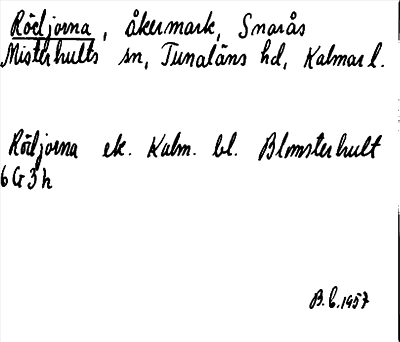 Rödjorna, åkermark, Snarås
Misterhults sn, Tunaläns hd, Kalmar l.
Rödjorna ek. Kalm. bl. Blomsterhult
6G3h
B.C. 1957